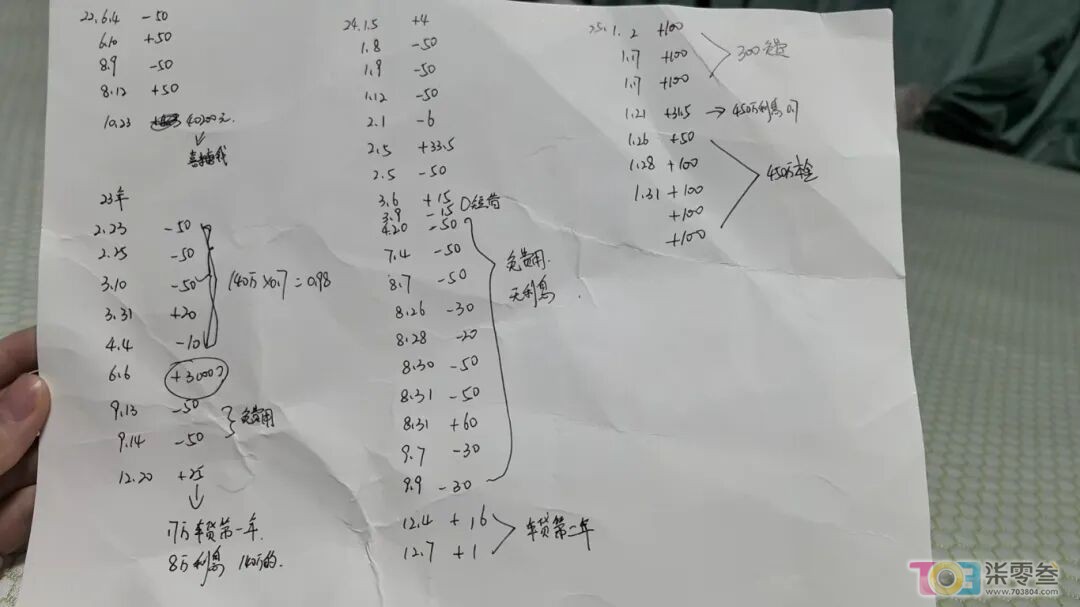 22.6.4 -50
6.10 +50
8.9 -50
8.12 +50
10.23 40200元.
23年
2.23 -50
2.25 -50
3.10 -50
3.31 +20
4.4 -10
140万×0.7=0.98
6.6 +3000?
9.13 -50
9.14 -50
免费用
12.20 +25
17万车贷第一年.
8万利息 140万的.
24.1.5 +4
1.8 -50
1.9 -50
1.12 -50
2.1 -6
2.5 +33.5
2.5 -50
3.6 +15
3.9 -15
4.20 -50
7.4 -50
8.7 -50
8.26 -30
8.28 -20
8.30 -50
8.31 -50
8.31 +60
9.7 -30
9.9 -30
免费用.
无利息.
12.4 +16
12.7 +1
车贷第二年
25.1.2 +100
1.17 +100
1.17 +100
1.21 +31.5 → 450万利息 0.7
1.26 +50
1.28 +100
1.31 +100
+100
+100
450万本金
703 柒零叁
www.703804.com